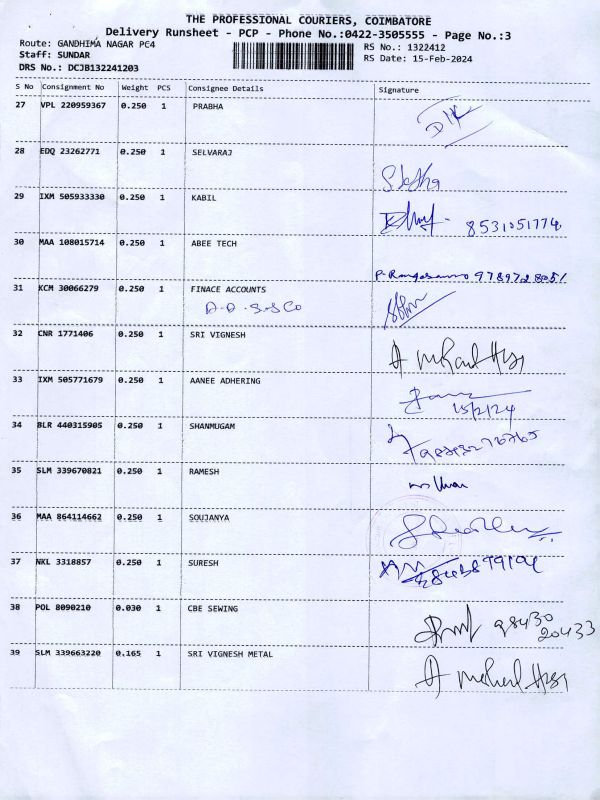 THE PROFESSIONAL COURIERS, COIMBATORE
Delivery Runsheet - PCP - Phone No.:0422-3505555 - Page No.:3
Route: GANDHIMA NAGAR PC4
RS No.: 1322412
Staff: SUNDAR
RS Date: 15-Feb-2024
DRS No.: DCJB132241203
S No Consignment No Weight PCS Consignee Details Signature
27 VPL 220959367 0.250 1 PRABHA
28 EDQ 23262771 0.250 1 SELVARAJ
29 IXM 505933330 0.250 1 KABIL
8531051774
30 MAA 108015714 0.250 1 ABEE TECH
9789728051
31 KCM 30066279 0.250 1 FINACE ACCOUNTS
32 CNR 1771406 0.250 1 SRI VIGNESH
33 IXM 505771679 0.250 1 AANEE ADHERING
15/2/24
34 BLR 440315905 0.250 1 SHANMUGAM
35 SLM 339670821 0.250 1 RAMESH
36 MAA 864114662 0.250 1 SOUJANYA
37 NKL 3318857 0.250 1 SURESH
38 POL 8090210 0.030 1 CBE SEWING
98430
20433
39 SLM 339663220 0.165 1 SRI VIGNESH METAL